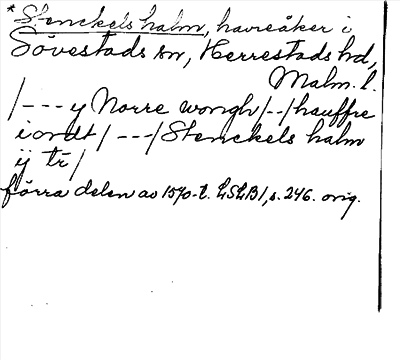 *Stenckels halm, havreåker i
Sövestads sn, Herrestads hd,
Malm. l.
/--- y Norre wongh /--/ hauffre
iordt / ---/ Stenckels halm
ij tr /
förra delen av 1570-t. LSLB1, s. 246. orig.